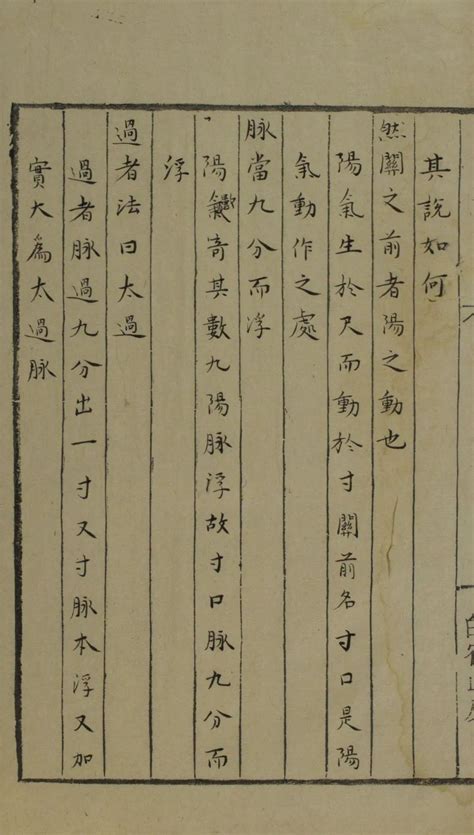 其說如何
然關之前者陽之動也
陽氣生於尺而動於寸關前名寸口是陽
氣動作之處
脉當九分而浮
陽數奇其數九陽脉浮故寸口脉九分而
浮
過者法曰太過
過者脉過九分出一寸又寸脉本浮又加
實大爲太過脉